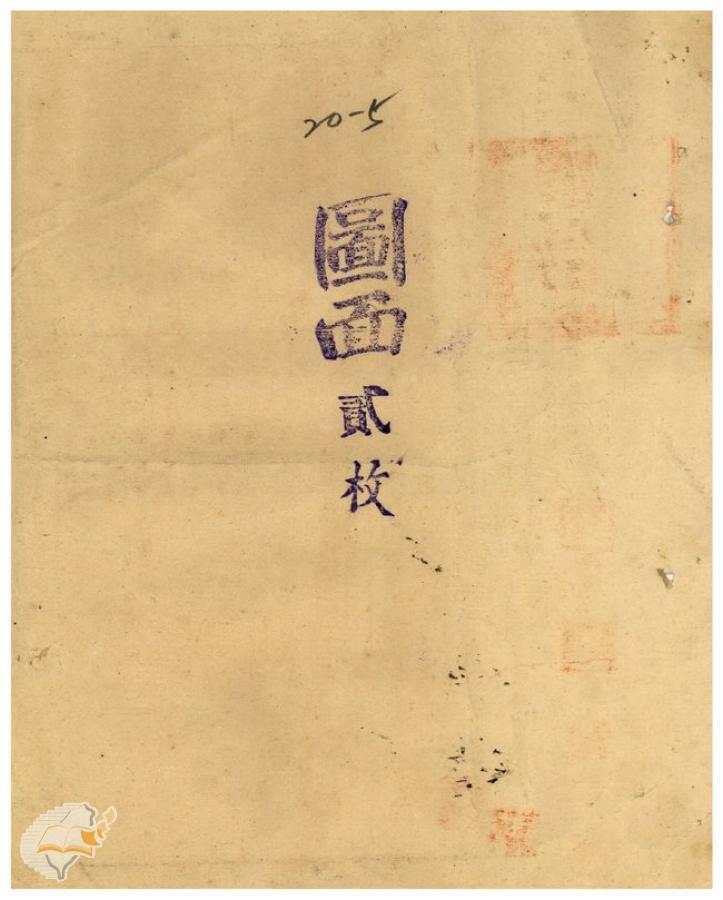 20-5
圖面貳枚